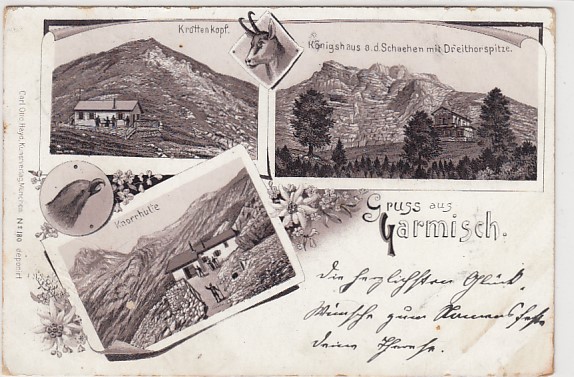 Krottenkopf.
Königshaus a.d. Schachen mit Dreithorspitze.
Knorrhütte
Gruss aus
Garmisch.
die herzlichsten Glück-
Wünsche zum Namensfeste
deine Therese.
Carl Otto Hayd, Kunstverlag, München. No 180 deponirt